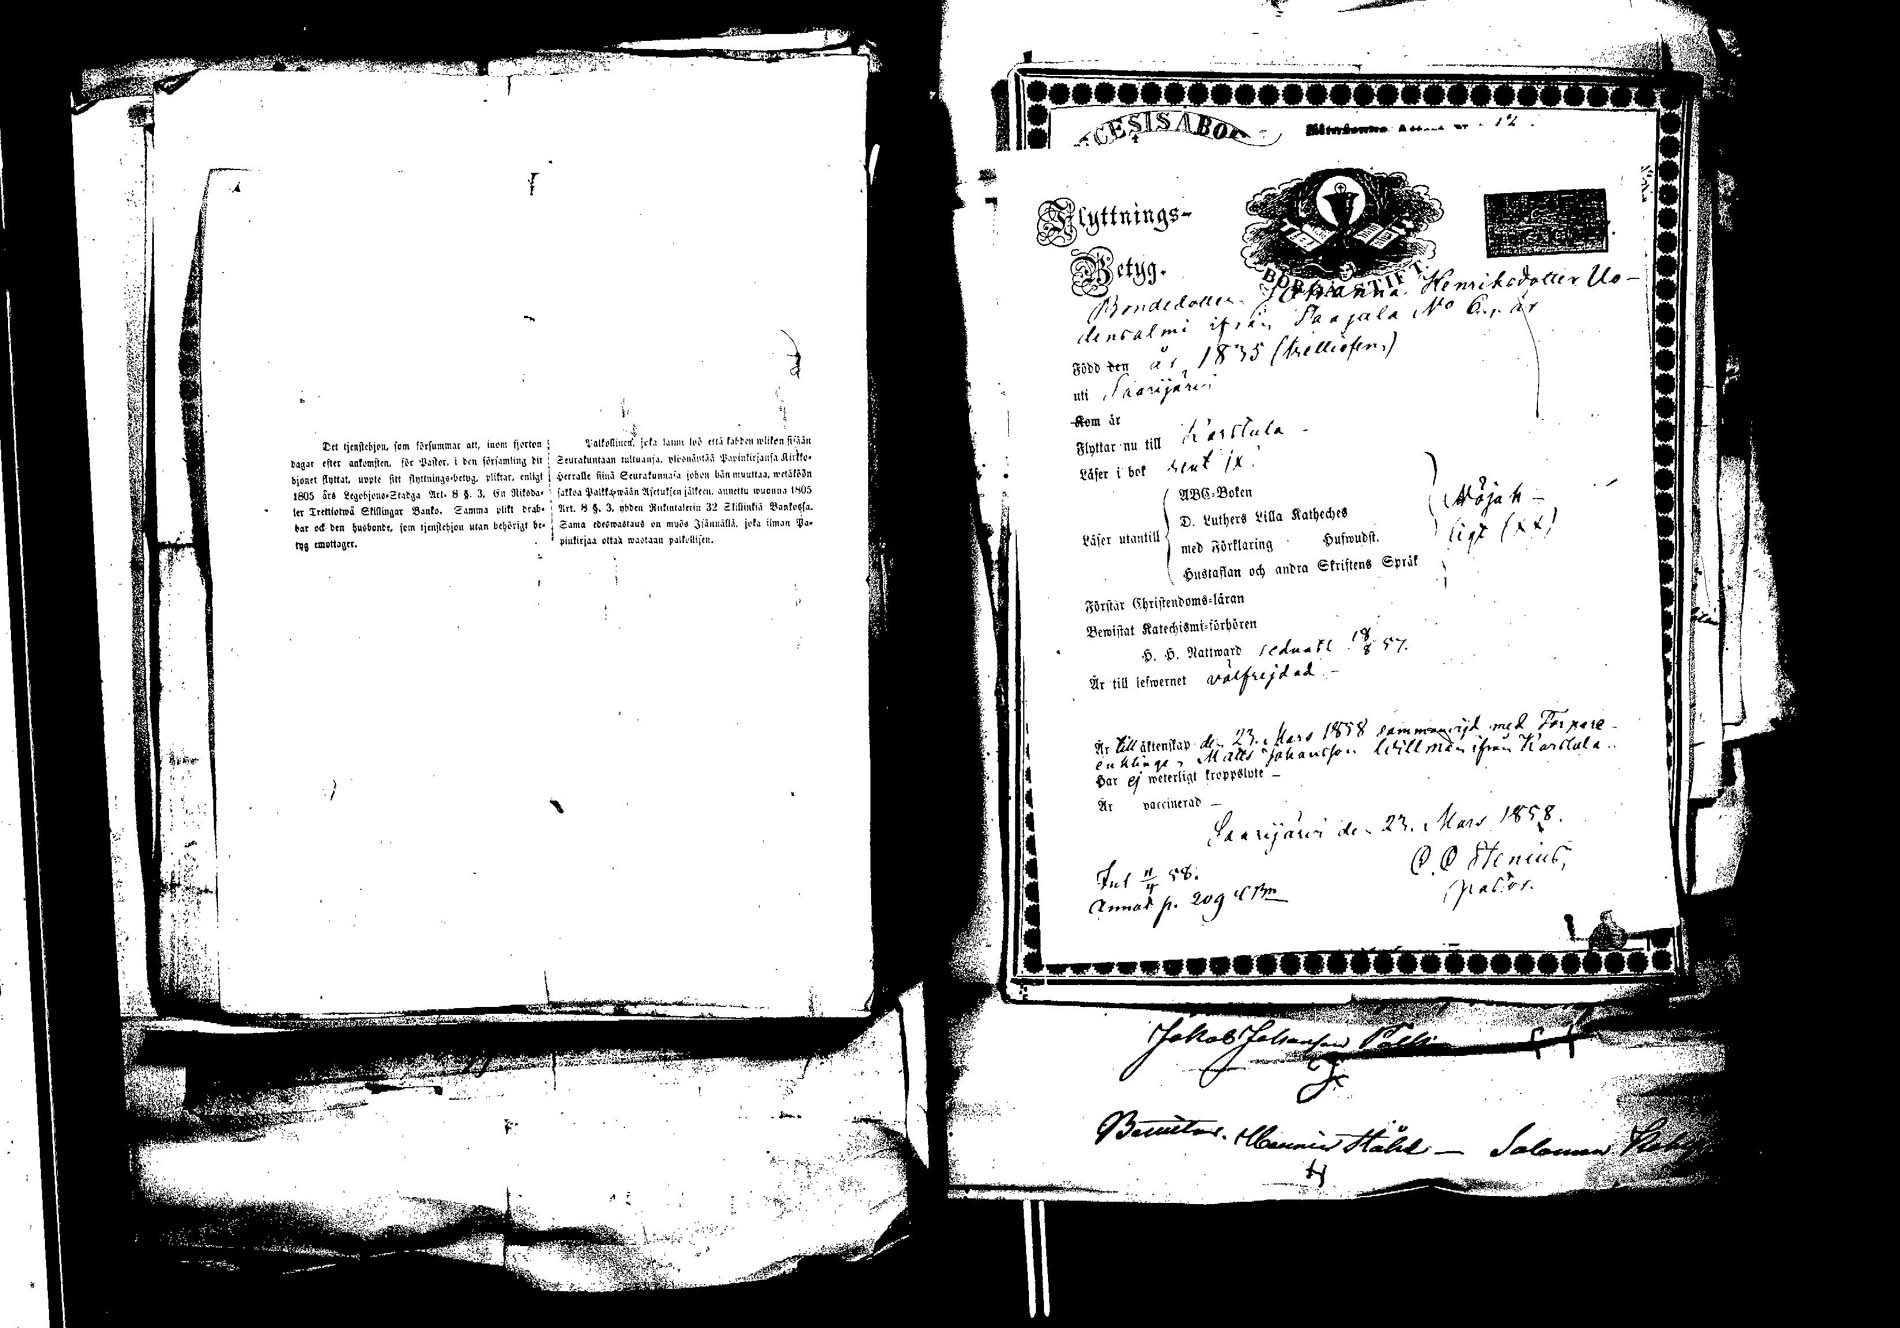 Det tjenstehjon, som försummar att, inom fjorton
dagar efter ankomsten, för Pastor, i den församling dit
hjonet flyttat, uppte sitt flyttnings-betyg, pliktar, enligt
1805 års Legohjons-Stadga Art. 8 §. 3, En Riksda-
ler Trettiotwå Skillingar Banko. Samma plikt drab-
bar ock den husbonde, som tjenstehjon utan behörigt be-
tyg emottager.
Palkollinen, joka laimi lyö että kahden wiikon sisään
Seurakuntaan tultuansa, ylösnäyttää Papinkirjansa Kirkko-
herralle siinä Seurakunnasa johon hän muuttaa, wetäköön
sakkoa Palkkawään Asetuksen jälkeen, annettu wuonna 1805
Art. 8 §. 3, yhden Riikintalerin 32 Skillinkiä Bankossa.
Sama edeswastaus on myös Isännällä, joka ilman Pa-
pinkirjaa ottaa wastaan palkollisen.
12
Flyttnings-
Betyg.
BORGÅ STIFT
Bondedotter Johanna Henriksdotter Uo-
densalmi ifrån Saajala No 6, är
Född den år 1835 (trettiofem)
uti Saarijärvi
Kom år
Flyttar nu till Karstula -
Läser i bok rent (x)
ABC-Boken
D. Luthers Lilla Katheches
Läser utantill
med Förklaring Hufwudst.
Hustaflan och andra Skriftens Språk
Nöjak-
ligt (xx)
Förstår Christendoms-läran
Bewistat Katechismi-förhören
H. H. Nattward sednast 18/8 57.
Är till lefwernet välfrejdad -
Är till äktenskap den 23. Mars 1858 sammanvigd med Torpare-
enklingen Matts Johansson Willman ifrån Karstula.
Har ej weterligt kroppslyte -
Är vaccinerad -
Saarijärvi den 23. Mars 1858.
C. C. Stenius,
pastor.
Inl 11/4 58.
Annot p. 209
Jakob Johansson
Bewittna. Stähl — Salomon